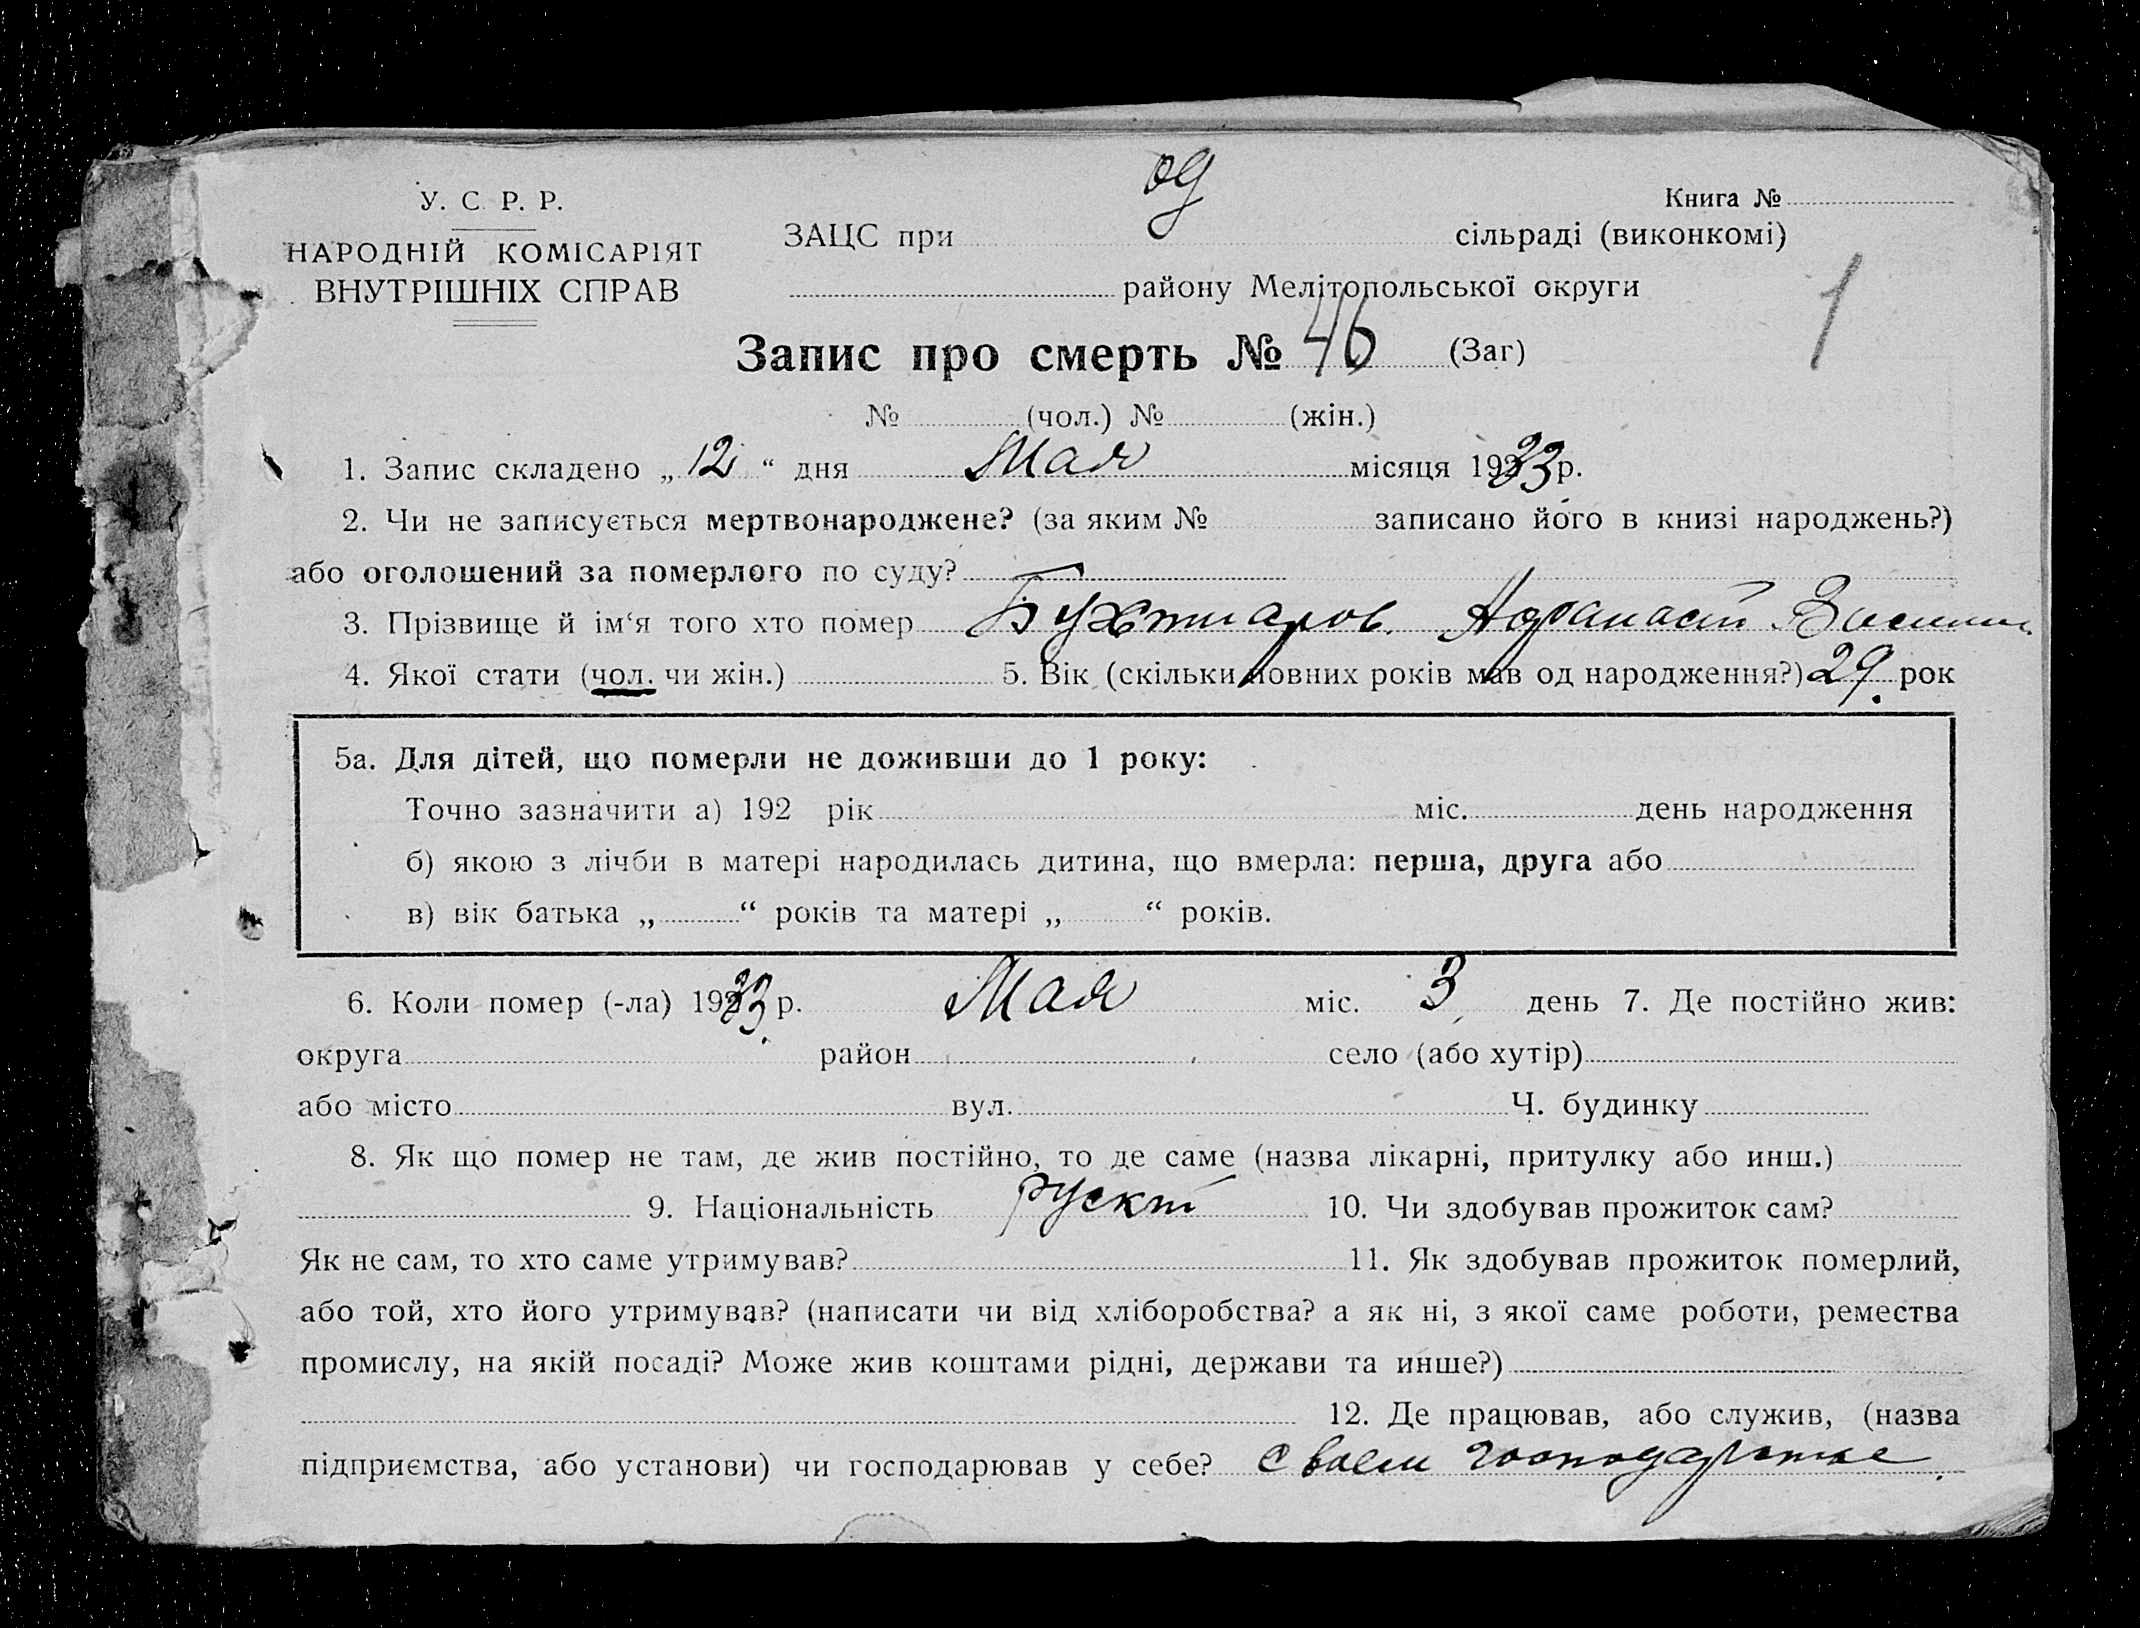 од
У. С. Р. Р.
НАРОДНІЙ КОМІСАРІЯТ
ВНУТРІШНІХ СПРАВ
Книга №
ЗАЦС при сільраді (виконкомі)
району Мелітопольської округи
1
Запис про смерть № 46 (Заг)
№ (чол.) № (жін.)
1. Запис складено „ 12 “ дня Мая місяця 1933 р.
2. Чи не записується мертвонароджене? (за яким № записано його в книзі народжень?)
або оголошений за померлого по суду?
3. Прізвище й ім‘я того хто помер Бухтиаров. Афанасій
4. Якої стати (чол. чи жін.) 5. Вік (скільки повних років мав од народження?) 29. рок
5а. Для дітей, що померли не доживши до 1 року:
Точно зазначити а) 192 рік міс. день народження
б) якою з лічби в матері народилась дитина, що вмерла: перша, друга або
в) вік батька „ “ років та матері „ “ років.
6. Коли помер (-ла) 1933 р. Мая міс. 3 день 7. Де постійно жив:
округа район село (або хутір)
або місто вул. Ч. будинку
8. Як що помер не там, де жив постійно, то де саме (назва лікарні, притулку або инш.)
9. Національність рускій 10. Чи здобував прожиток сам?
Як не сам, то хто саме утримував? 11. Як здобував прожиток померлий,
або той, хто його утримував? (написати чи від хліборобства? а як ні, з якої саме роботи, ремества
промислу, на якій посаді? Може жив коштами рідні, держави та инше?)
12. Де працював, або служив, (назва
підприємства, або установи) чи господарював у себе? своем